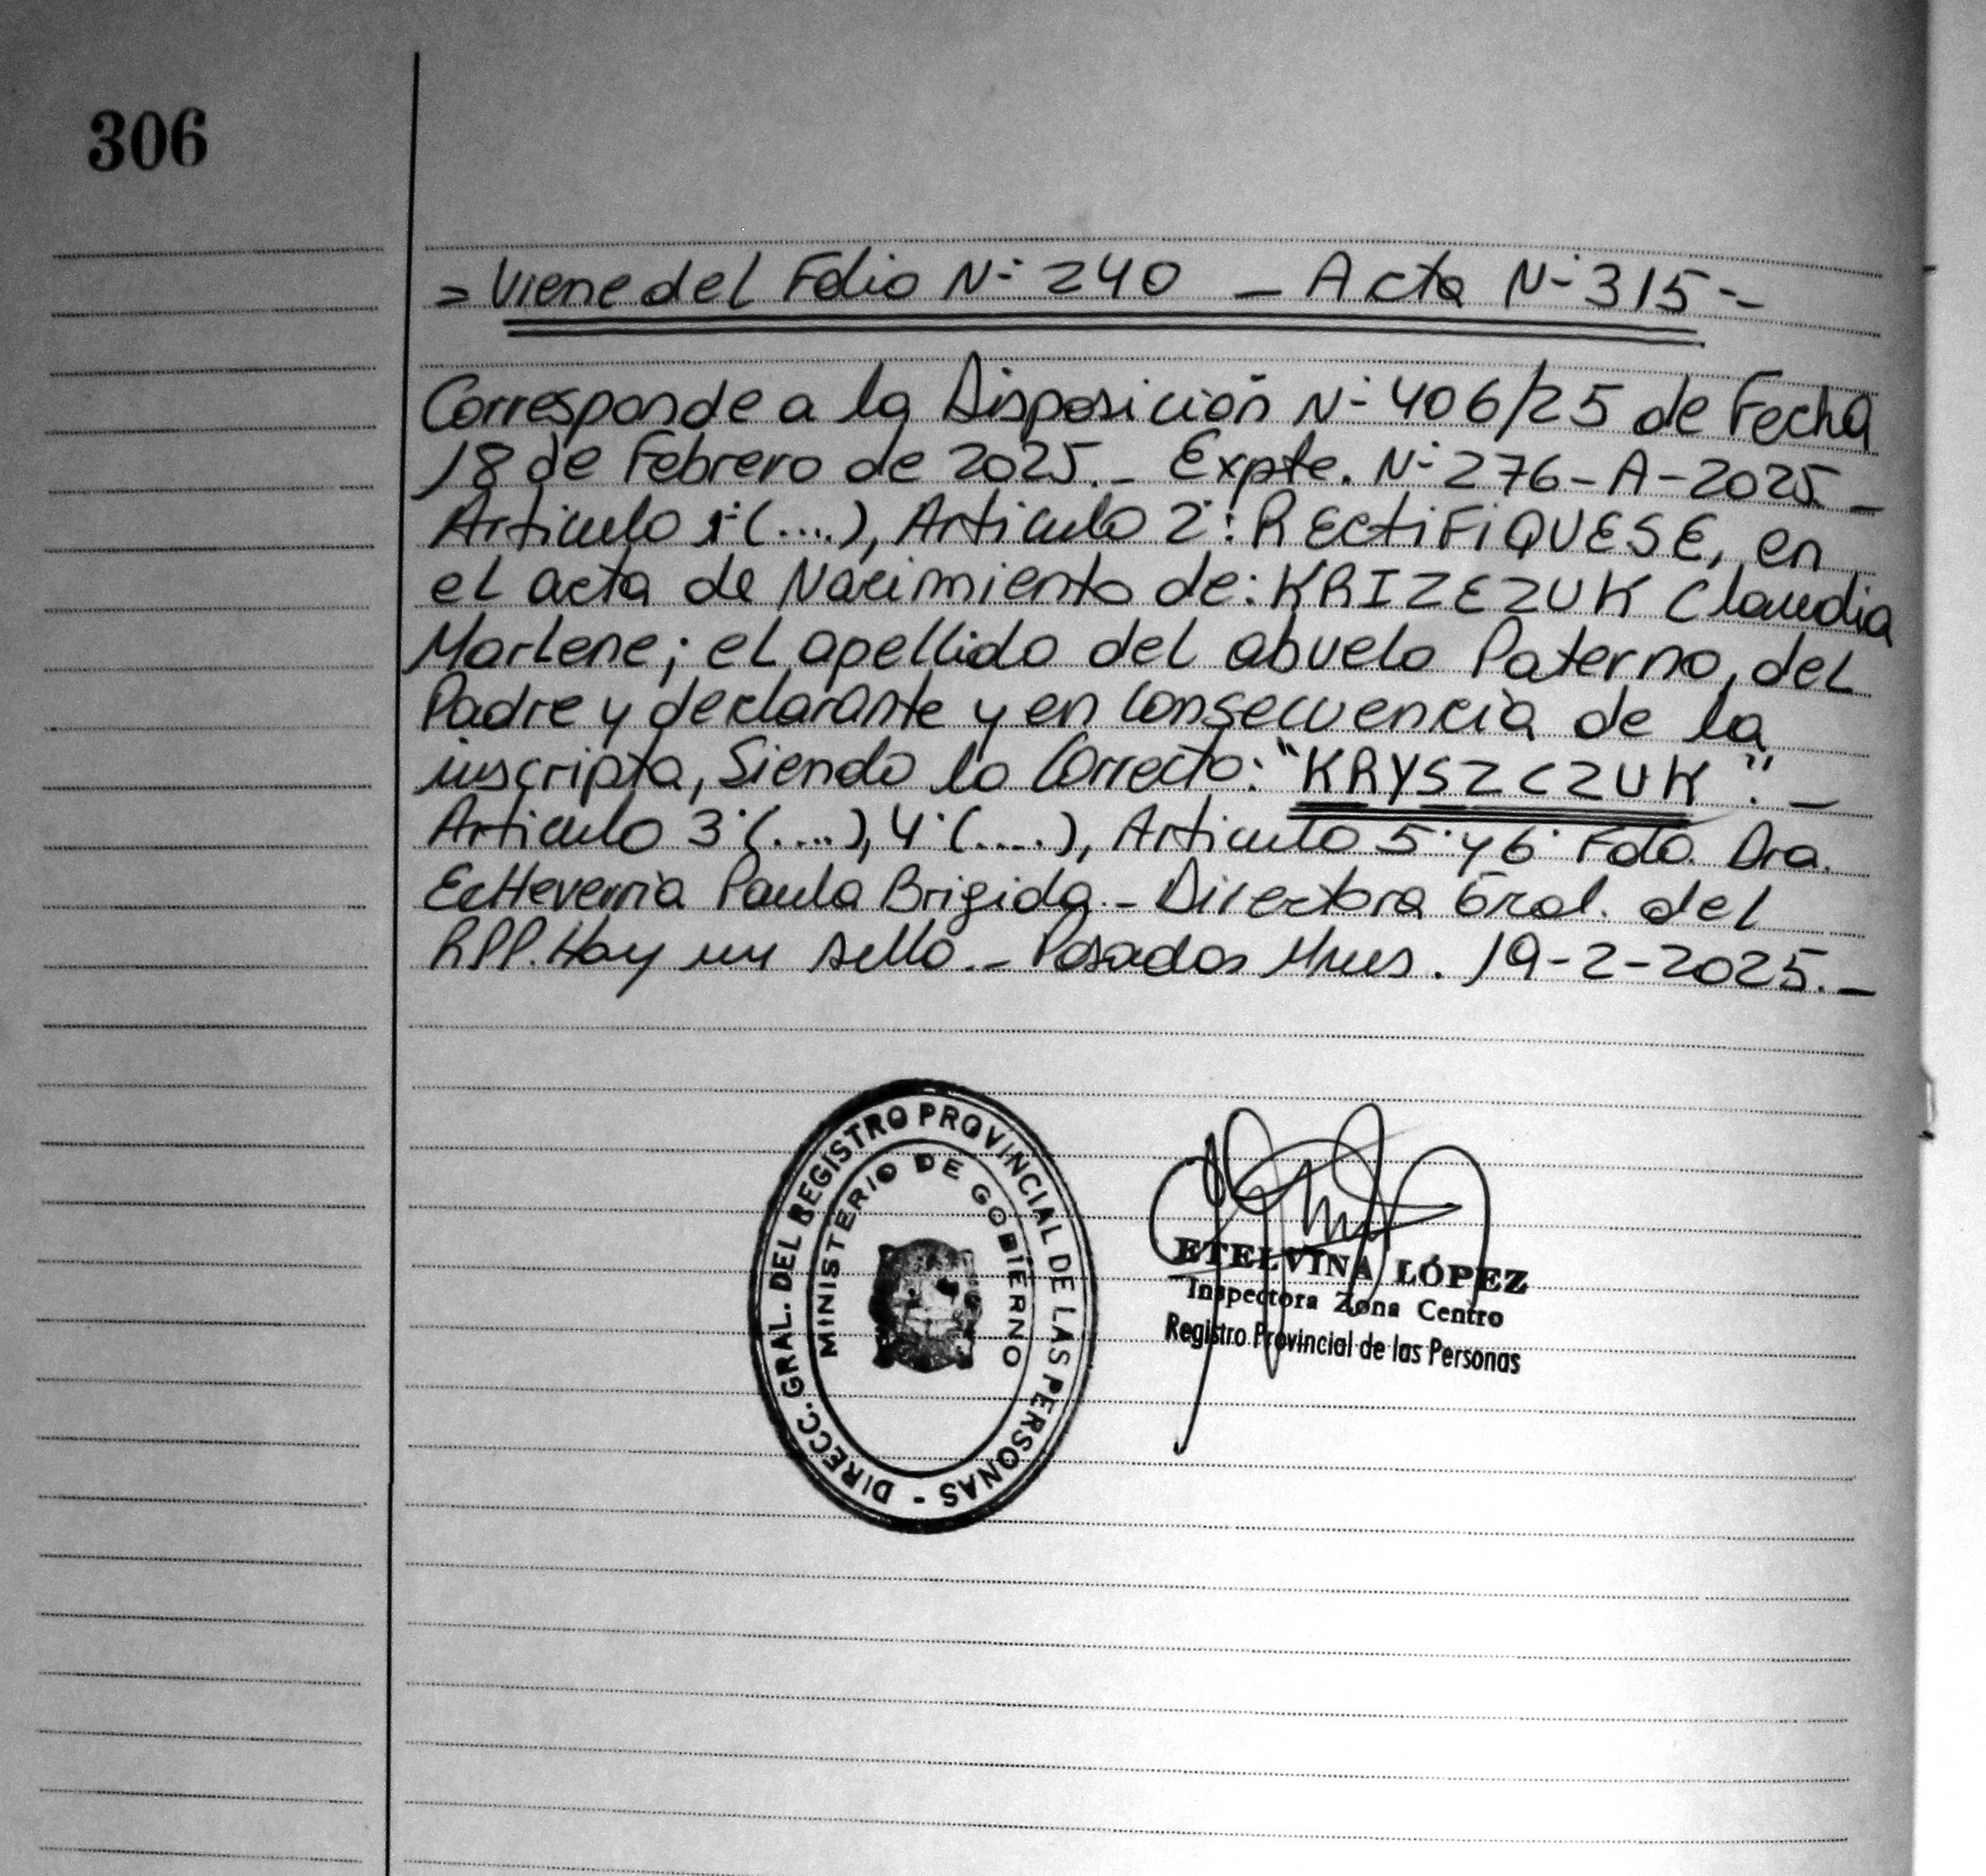 306
= Viene del Folio N° 240 _ Acta N° 315--
Corresponde a la Disposición N° 406/25 de Fecha
18 de Febrero de 2025._ Expte. N° 276-A-2025_
Articulo 1°(....), Articulo 2°: RECtiFiQUESE, en
el acta de Nacimiento de: KRIZEZUK Claudia
Marlene; el apellido del abuelo Paterno, del
Padre y declarante y en consecuencia de la
inscripta, Siendo lo Correcto: "KRYSZCZUK"._
Articulo 3°(....), 4°(....), Articulo 5° y 6° Fdo. Dra.
Echeverria Paula Brigida._ Directora Gral. del
RPP. Hay un sello._ Posadas Mnes. 19-2-2025._
DIRECC. GRAL. DEL REGISTRO PROVINCIAL DE LAS PERSONAS -
MINISTERIO DE GOBIERNO
ETELVINA LÓPEZ
Inspectora Zona Centro
Registro Provincial de las Personas